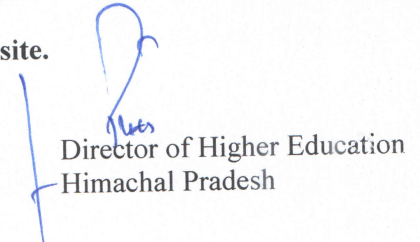 site.
Director of Higher Education
Himachal Pradesh